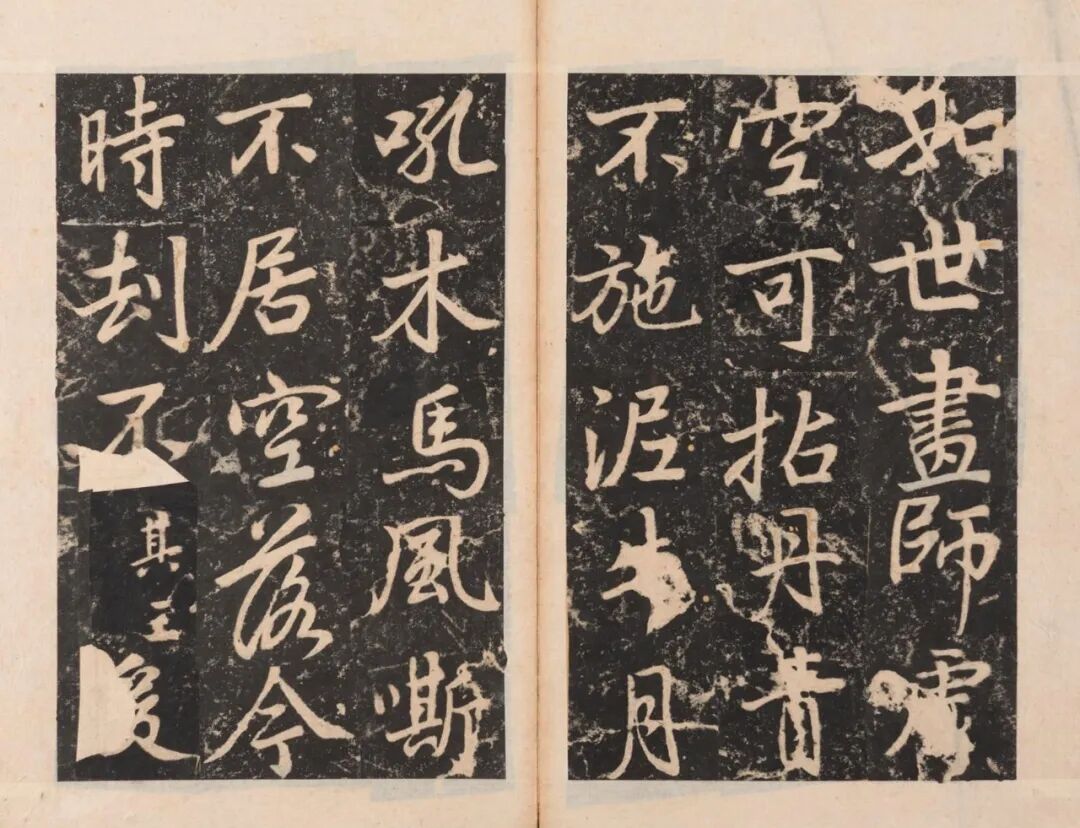 如世畫師虛
空可拈丹青
不施泥牛月
吼木馬風嘶
不居空落今
時刦不
其王